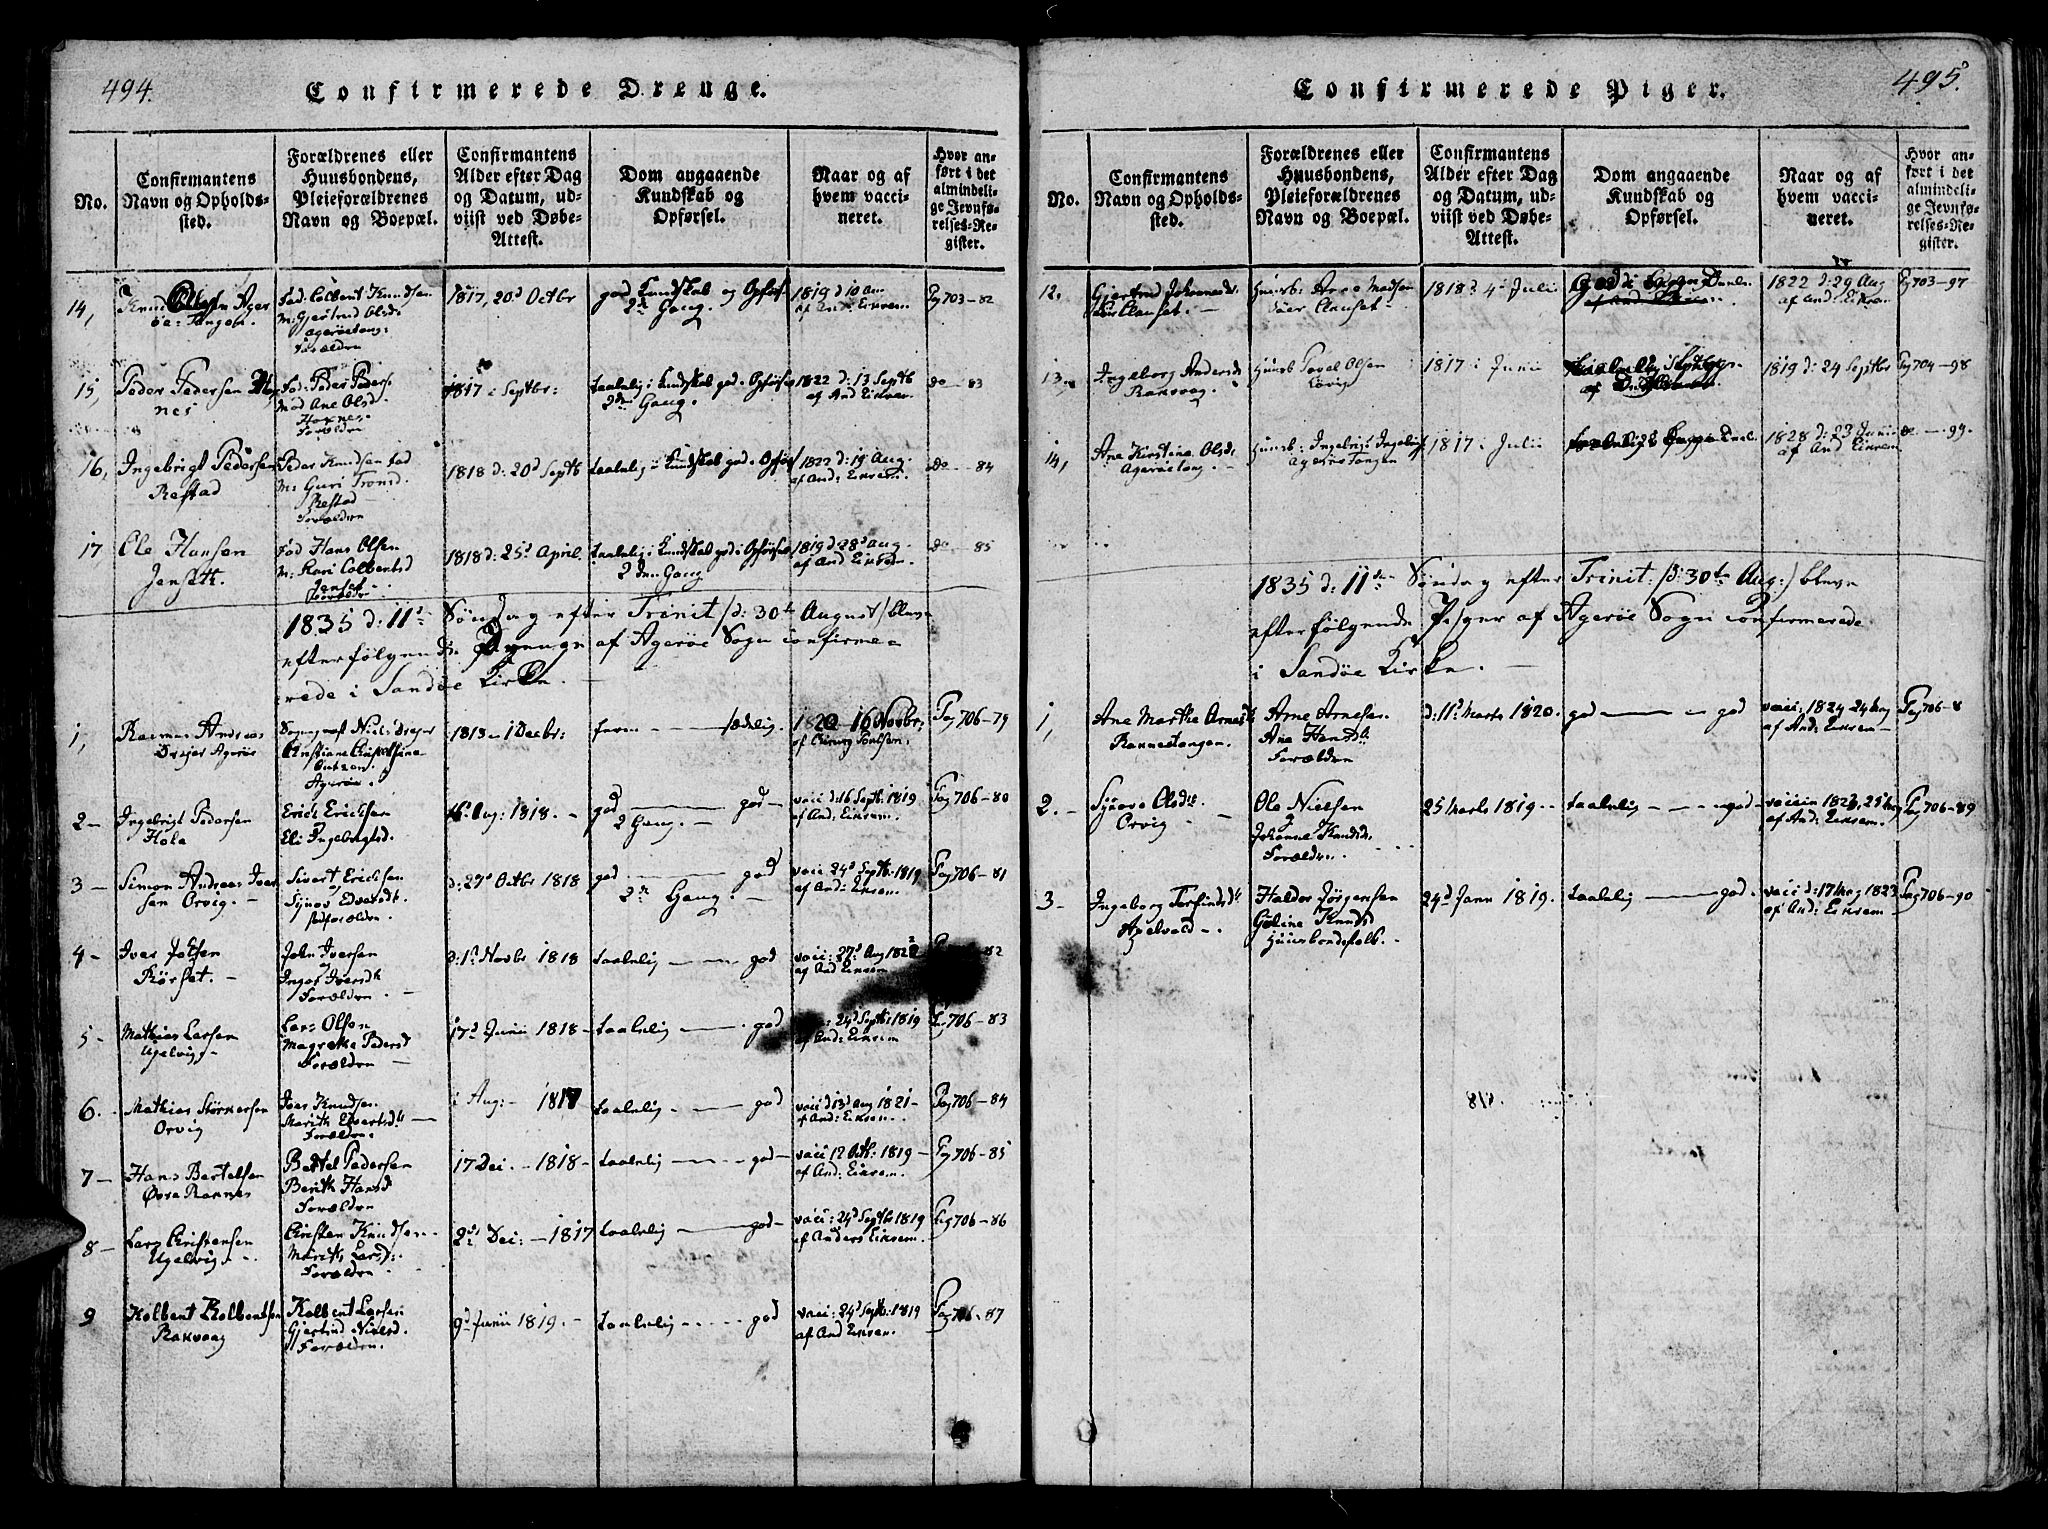 494.
Confirmerede Drenge.
No.
Confirmantens
Navn og Opholds-
sted.
Forældrenes eller
Huusbondens,
Pleieforældrenes
Navn og Boepæl.
Confirmantens
Alder efter Dag
og Datum, ud-
viist ved Døbe-
Attest.
Dom angaaende
Kundskab og
Opførsel.
Naar og af
hvem vacci-
neret.
Hvor an-
ført i det
almindeli-
ge Jevnfø-
relses-Re-
gister.
14,
Knud
Fad: Colbent Knudsen
M: Gjertrud Olsd:
Agerøetang:
Forældre
1817, 20d Octbr
god Kundskab og Opførs
2d Gang.
1819 d 10
af And: Eikrem
Pg 703-82
15,
Peder Pedersen
Fad: Peder Peders
Mod Ane Olsd.
Forældre
1817 i Septbr:
taalelig i Kundskab god i Opførsel
2den Gang.
1822 d: 13 Septb
af And Eikrem
do - 83
16,
Ingebrigt Pedersen
Restad
Peder Knudsen Fad
M: Guri Tronsd.
Restad
Forældre
1818 d: 20d Septb
taalelig i Kundskab god i Opførs
1822 d: 19 Aug.
af And: Eikrem.
do - 84
17
Ole Hansen
Jenset.
Fad Hans Olsen
M: Kari Colbentsd
Jenset
Forældre
1818 d: 25d April.
taalelig i Kundskab god i Opførsel
2den Gang
1819 d 28d Aug.
af And Eikrem.
do - 85
1835 d: 11te Søndag efter Trinit /d: 30te August/ bleve
efterfølgende Drenge af Agerøe Sogn confirme=
rede i Sandøe Kirke. —
1,
Rasmus Andreas
Dreyer Agerøe
Niels Dreyer
Agerøe.
1813 - 1 Decbr:
1820 16 Novbr:
Pag 706-79
2-
Ingebrigt Pedersen
Hole
Erich Erichsen
Eli Ingebrigtsd.
16 Aug: 1818. -
god — god -
2 Gang. -
vacc d: 16 Septb: 1819
af And: Eikrem.
Pag 706-80
3 -
Simon Andreas Iver
sen Orvig. -
Sivert Erichsen
Synov Edvardsd:
d: 27d Octbr 1818
god — god
2de Gang. -
vacc 24d Septb. 1819
af And: Eikrem
Pag 706-81
4 -
Iver Johsen
Rørset. -
John Iversen
Forældre. -
d: 1te Novbr 1818
taalelig — god
vacc: 27d Aug 1822
af And Eikrem
82
5 -
Mathias Larsen
Ugelvig -
Lars Olsen
Magrethe Pedersd
Forældre —
17d Junii 1818 -
taalelig — god
24d Septb: 1819
af And: Eikrem
Pag 706-83
6. -
Mathias Størkersen
Orvig
Iver Knudsen
Marith Edvartsd. —
Forældre.
i Aug: - 1817
taalelig — god
vacc d 13d Aug 1821 -
af And: Eikrem. -
Pag 706-84
7 -
Hans Bertelsen
Øvre Raknes
Bertel Pedersen
Berith Hansd
Forældre
17 Dec. - 1818 -
taalelig — god -
vacc 12 Octb: 1819 -
af And: Eikrem.
Pag 706-85
8 -
Lars Christensen
Ugelvig. -
Christen Knudsen
Marith Larsd:
Forældre
2de Dec: - 1817
taalelig — god -
vacc: 24d Septbr 1819
af Anders Eikrem.
Pag 706-86
9
Kolbent Kolbentsen
Rakvaag
Kolbent Larsen
Gjertrud Nielsd.
Forældre.
9d Junii 1819. -
taalelig — god
vacc: 24d Septb: 1819
af And Eikrem.
Pag 706-87
495.
Confirmerede Piger.
No.
Confirmantens
Navn og Opholds-
sted.
Forældrenes eller
Huusbondens,
Pleieforældrenes
Navn og Boepæl.
Confirmantens
Alder efter Dag
og Datum, ud-
viist ved Døbe-
Attest.
Dom angaaende
Kundskab og
Opførsel.
Naar og af
hvem vacci-
neret.
Hvor an-
ført i det
almindeli-
ge Jevnfø-
relses-Re-
gister.
12.
Gjertrud
Huusb: Arne Madsen
1818 d 4d Julii
1822 d: 29 Aug
af And: Eikrem
Pg 703-97
13.
Ingeborg Andersd
Rakvaag
Huusb Povel Olsen
Løvig
1817 i Junii
1819 d: 24 Septbr
Pg 704-98
14,
Ane Kirstine Olsd:
Agerøetang. -
Huusb: Ingebrigt Ingebrigt
Agerøe Tangen
1817 i Julii
1828 d: 23 Junii
af And Eikrem
do - 99.
1835 d: 11te Søndag efter Trinit: /d: 30te Aug:/ bleve
efterfølgende Piger af Agerøe Sogn confirmerede
i Sandøe Kirke. —
1,
Ane Marthe Arnesd
Raknestangen.
Arne Arnesen
Ane Hansd
Forældre
d: 11te Marts 1820.
god — god
vacc: 1824 24 May
af And: Eikrem -
Pag 706-8
2. -
Synove Olsdtr
Orvig
Ole Nielsen
Johanne Knudsd.
Forældre. .
25 Marts 1819. -
taalelig — god -
af And: Eikrem.
Pag 706-89
3 -
Ingeborg Torfindsd
Apelvold -
Haldor Jørgensen
Knudsd
Huusbondefolk. -
24d Janu 1819.
taalelig — god.
vacc d: 17 May 1823
af And: Eikrem -
Pag 706-90